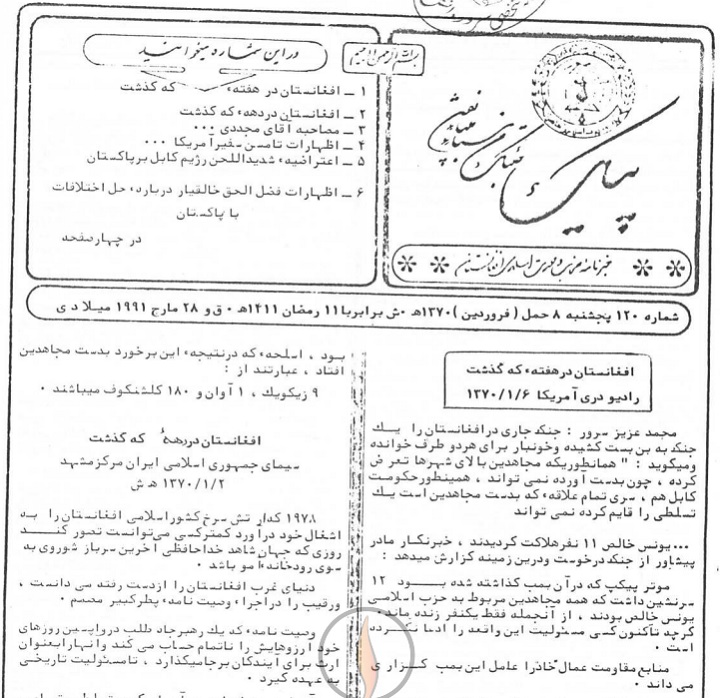 در این شماره میخوانید
بسم الله الرحمن الرحیم
۱ ـ افغانستان در هفتهء که گذشت
۲ ـ افغانستان دردههء که گذشت
۳ ـ مصاحبه آقای مجددی ۰۰۰
۴ ـ اظهارات تامسن سفیر آمریکا ۰۰۰
۵ ـ اعتراضیهء شدیداللحن رژیم کابل برپاکستان
۶ ـ اظهارات فضل الحق خالقیار دربارهء حل اختلافات
با پاکستان
در چهارصفحه
شماره ۱۲۰ پنجشنبه ۸ حمل ( فروردین ) ۱۳۷۰هـ ۰ش برابربا ۱۱ رمضان ۱۴۱۱هـ ۰ ق و ۲۸ مارچ ۱۹۹۱ میلادی
افغانستان درهفتهء که گذشت
رادیو دری آمریکا ۱۳۷۰/۱/۶
محمد عزیز سرور : جنگ جاری درافغانستان را یک
جنگ به بن بست کشیده وخونبار برای هردو طرف خوانده
ومیگوید : " همانطوریکه مجاهدین بالای شهرها تعرض
کرده ، چون بدست آورده نمی تواند ، همینطورحکومت
کابل هم ، سری تمام علاقهء که بدست مجاهدین است یک
تسلطی را قایم کرده نمی تواند
۰۰۰یونس خالص ۱۱ نفرهلاکت گردیدند ، خبرنگار مادر
پیشاور از جنگ درخوست ودرین زمینه گزارش میدهد :
موتر پیکپ که درآن بمب گذاشته شده بود ۱۲
سرنشین داشت که همه مجاهدین مربوط به حزب اسلامی
یونس خالص بودند ، از آنجمله فقط یکنفر زنده ماند۰
گرچه تاکنون کسی مسئولیت این واقعه را ادعا نکرده
است ۰
منابع مقاومت عمال خاد را عامل این بمب گزاری
می داند ۰
بود ، اسلحهء که درنتیجهء این برخورد بدست مجاهدین
افتاد ، عبارتند از :
۹ زیکویک ، ۱ آوان و ۱۸۰ کلشنکوف میباشند ۰
افغانستان دردههء که گذشت
سیمای جمهوری اسلامی ایران مرکزمشهد
۱۳۷۰/۱/۲ هـ ش
اشغال خود درآورد کمترکسی می‌توانست تصور کند
روزی که جهان شاهد خداحافظی آخرین سرباز شوروی به
سوی رودخانهء آمو باشد ۰
دنیای غرب افغانستان را ازدست رفته می دانست ،
ورقیب را دراجراء وصیت نامهء پطرکبیر مصمم ۰
وصیت نامهء که یک رهبرجاه طلب درواپسین روزهای
خود آرزوهایش را ناتمام حساب می کند وانهارابعنوان
ارث برای آیندگان برجامیگذارد ، تامسئولیت تاریخی
به عهده گیرد ۰